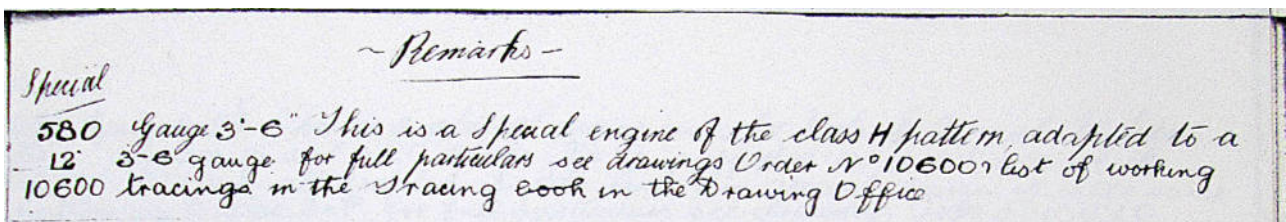 ~ Remarks ~
Special
580 Gauge 3'-6" This is a Special engine of the class H pattern, adapted to a
12" 3-6 gauge for full particulars see drawings Order Nº 10600 & list of working
10600 tracings in the Tracing book in the Drawing Office